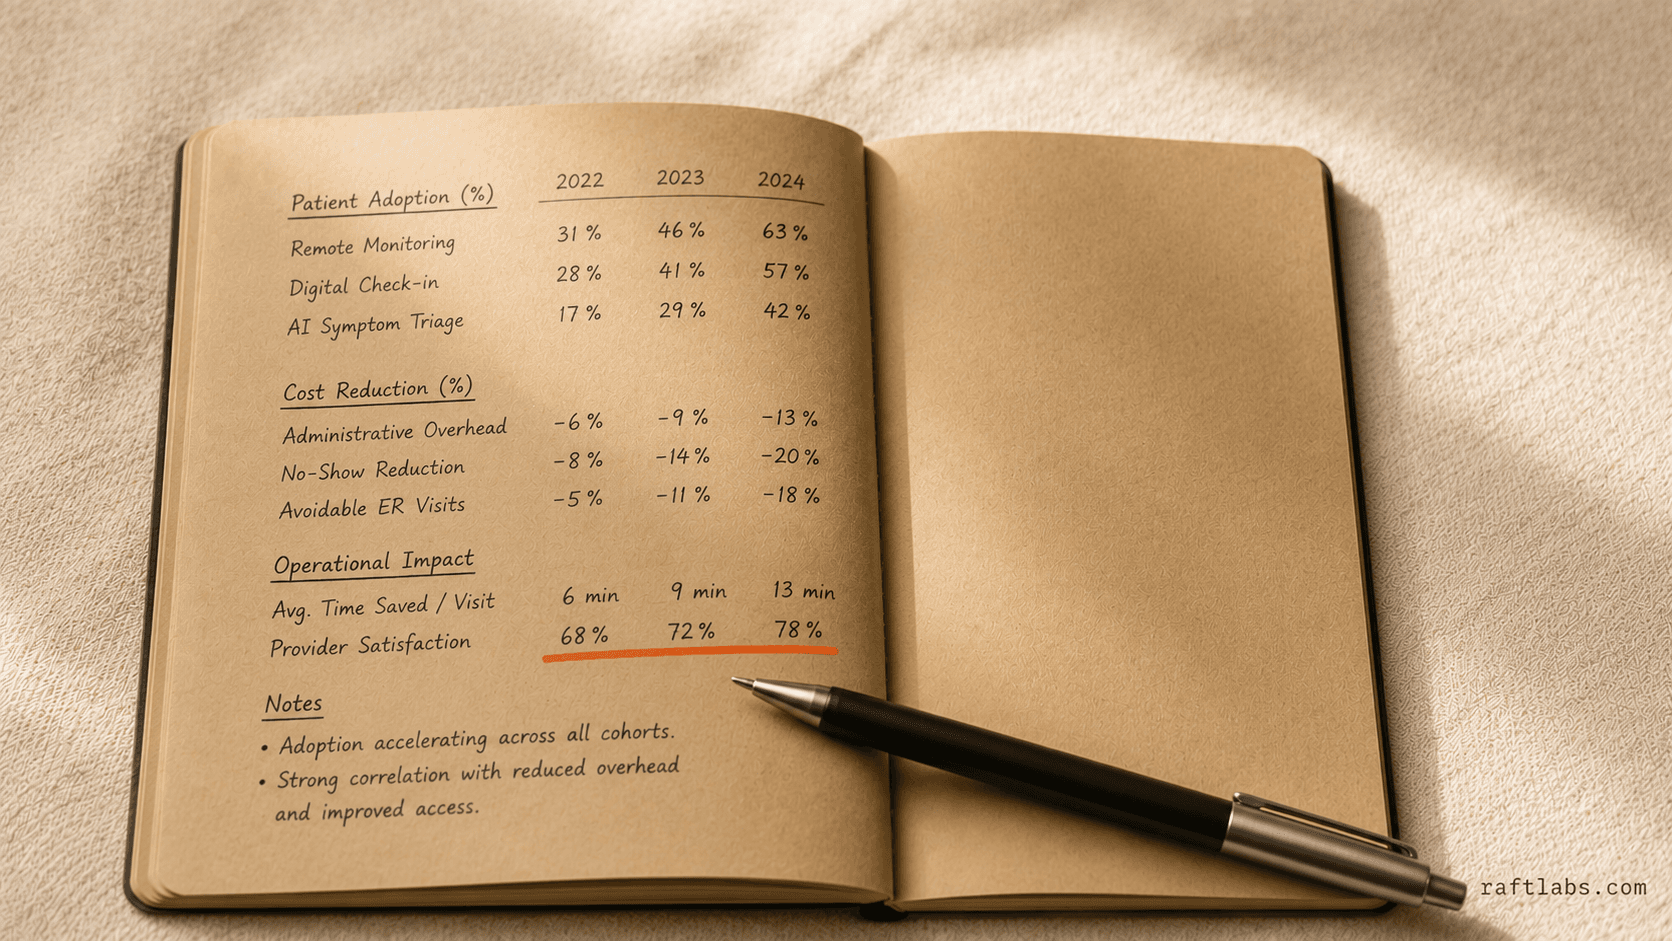 Patient Adoption (%) 2022 2023 2024
Remote Monitoring 31 % 46 % 63 %
Digital Check-in 28 % 41 % 57 %
AI Symptom Triage 17 % 29 % 42 %
Cost Reduction (%)
Administrative Overhead -6 % -9 % -13 %
No-Show Reduction -8 % -14 % -20 %
Avoidable ER Visits -5 % -11 % -18 %
Operational Impact
Avg. Time Saved / Visit 6 min 9 min 13 min
Provider Satisfaction 68 % 72 % 78 %
Notes
• Adoption accelerating across all cohorts.
• Strong correlation with reduced overhead
and improved access.
raftlabs.com